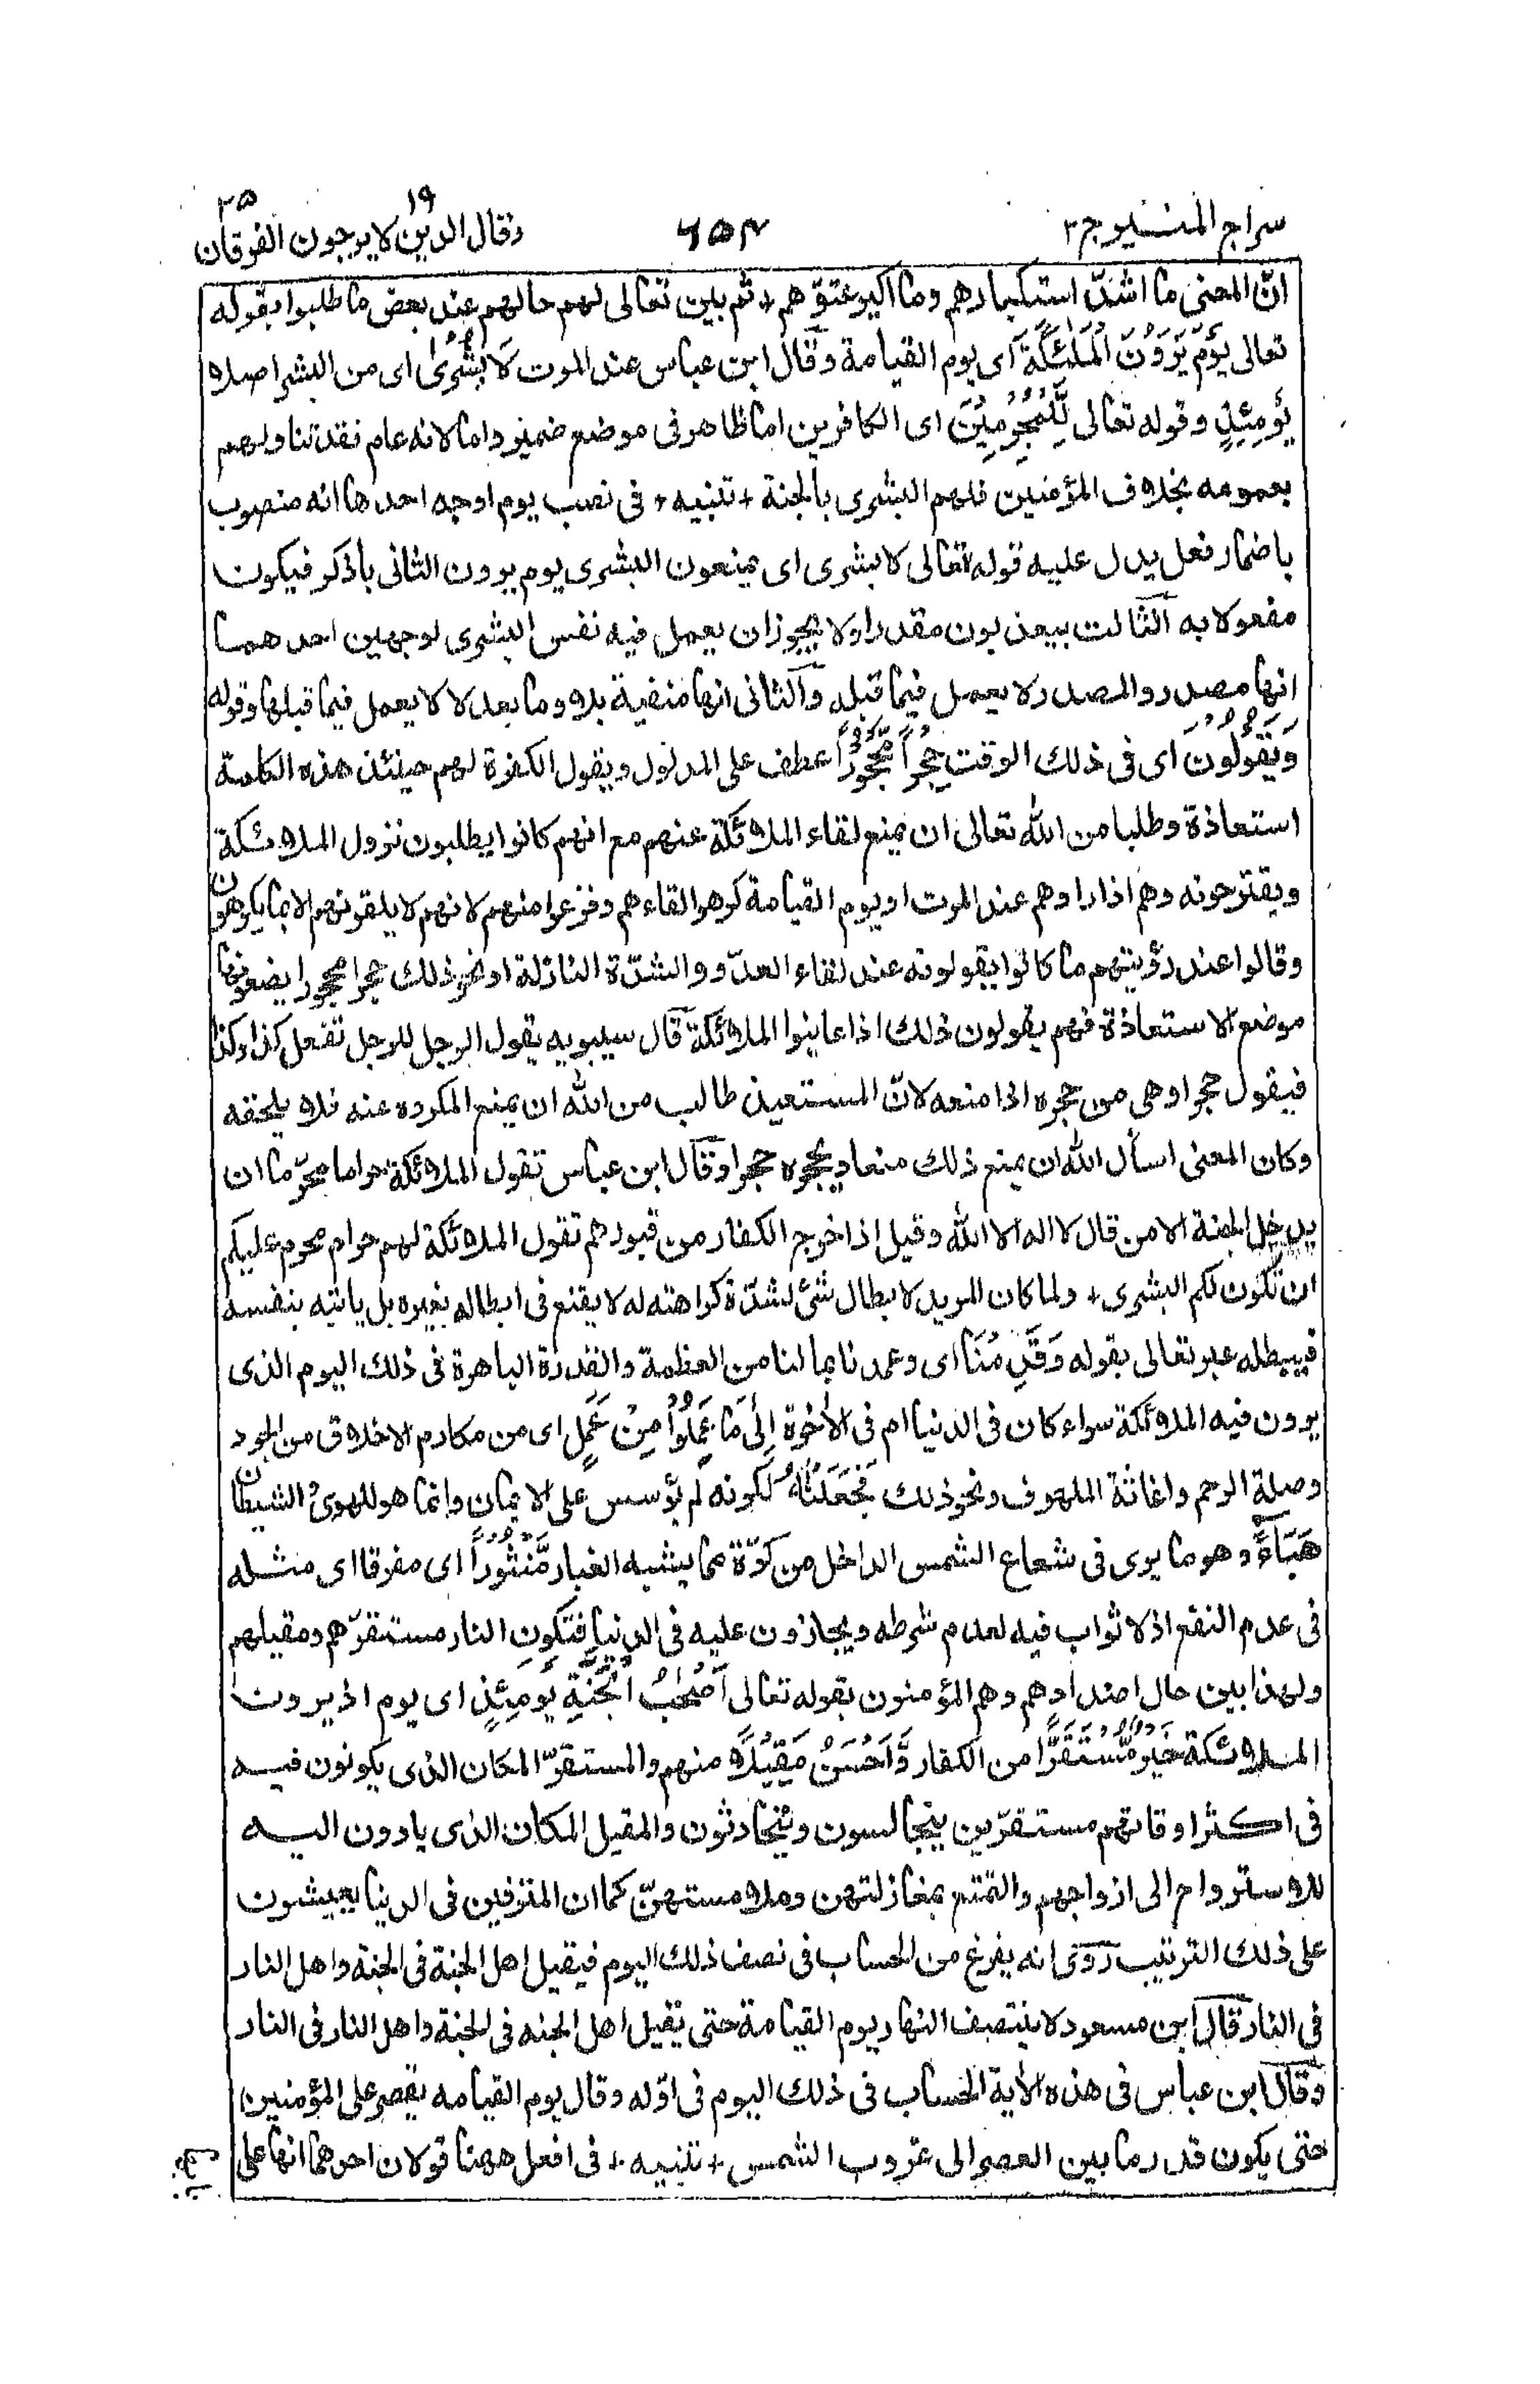 سراج المنير ج٣
٦٥٣
وقال الذين لا يرجون الفرقان
١٩
٢٥
انّ المعنى ما اشدّ استكبارهم وما اكبر عتوّهم + ثم بين تعالى لهم حالهم عند بعض ما طلبوا بقوله
تعالى يَوْمَ يَرَوْنَ الْمَلٰٓئِكَةَ اى يوم القيامة وقال ابن عباس عند الموت لَا بُشْرٰى اى من البشر اصلا
يَوْمَئِذٍ وقوله تعالى لِّلْمُجْرِمِيْنَ اى الكافرين اما ظاهر فى موضع ضمير واما لانه عام فقد تناولهم
بعمومه بخلاف المؤمنين فلهم البشرى بالجنة + تنبيه + فى نصب يوم اوجه احدها انه منصوب
باضمار فعل يدل عليه قوله تعالى لا بشرى اى يمنعون البشرى يوم يرون الثانى باذكر فيكون
مفعولا به الثالث بيعذبون مقدرا ولا يجوز ان يعمل فيه نفس البشرى لوجهين احدهما
انها مصدر والمصدر لا يعمل فيما قبله والثانى انها منفية بلا وما بعد لا لا يعمل فيما قبلها وقوله
وَيَقُوْلُوْنَ اى فى ذلك الوقت حِجْرًا مَّحْجُوْرًا عطف على المدلول ويقول الكفرة لهم حينئذ هذه الكلمة
استعاذة وطلبا من الله تعالى ان يمنع لقاء الملائكة عنهم مع انهم كانوا يطلبون نزول الملائكة
ويقترحونه وهم اذا راوهم عند الموت او يوم القيامة كرهوا لقاءهم وفزعوا منهم لانهم لا يلقونهم الا بما يكرهون
وقالوا عند رؤيتهم ما كانوا يقولونه عند لقاء العدوّ والشدّة النازلة او نحو ذلك حجرا محجورا يضعونها
موضع الاستعاذة فهم يقولون ذلك اذا عاينوا الملائكة قال سيبويه يقول الرجل للرجل تفعل كذا وكذا
فيقول حجرا وهى من حجره اذا منعه لانّ المستعيذ طالب من الله ان يمنع المكروه عنه فلا يلحقه
وكان المعنى اسأل الله ان يمنع ذلك منعا ويحجره حجرا وقال ابن عباس تقول الملائكة حراما محرّما ان
يدخل الجنة الا من قال لا اله الا الله وقيل اذا خرج الكفار من قبورهم تقول الملائكة لهم حرام محرم عليكم
ان تكون لكم البشرى + ولما كان المريد لابطال شئ لشدّة كراهته له لا يقنع فى ابطاله بغيره بل ياتيه بنفسه
فيبطله عبر تعالى بقوله وَقَدِمْنَا اى وعمدنا بما لنا من العظمة والقدرة الباهرة فى ذلك اليوم الذى
يرون فيه الملائكة سواء كان فى الدنيا ام فى الاٰخرة اِلٰى مَا عَمِلُوْا مِنْ عَمَلٍ اى من مكارم الاخلاق من الجود
وصلة الرحم واغاثة الملهوف ونحو ذلك فَجَعَلْنٰهُ لكونه لم يؤسس على الايمان وانما هو للهوى والشيطان
هَبَآءً وهو ما يرى فى شعاع الشمس الداخل من كوّة مما يشبه الغبار مَّنْثُوْرًا اى مفرقا اى مثله
فى عدم النفع اذ لا ثواب فيه لعدم شرطه ويجازون عليه فى الدنيا فتكون النار مستقرّهم ومقيلهم
ولهذا بين حال اضدادهم وهم المؤمنون بقوله تعالى اَصْحٰبُ الْجَنَّةِ يَوْمَئِذٍ اى يوم اذ يرون
الملائكة خَيْرٌ مُّسْتَقَرًّا من الكفار وَّاَحْسَنُ مَقِيْلًا منهم والمستقرّ المكان الذى يكونون فيه
فى اكثر اوقاتهم مستقرّين يتجالسون ويتحادثون والمقيل المكان الذى ياوون اليه
للاسترواح الى ازواجهم والتمتع بمغازلتهن وملامستهنّ كما ان المترفين فى الدنيا يعيشون
على ذلك الترتيب روى انه يفرغ من الحساب فى نصف ذلك اليوم فيقيل اهل الجنة فى الجنة واهل النار
فى النار قال ابن مسعود لا ينتصف النهار يوم القيامة حتى يقيل اهل الجنه فى الجنة واهل النار فى النار
وقال ابن عباس فى هذه الاٰية الحساب فى ذلك اليوم فى اوّله وقال يوم القيامه يقصر على المؤمنين
حتى يكون قدر ما بين العصر الى غروب الشمس + تنبيه + فى افعل ههنا قولان احدهما انها على